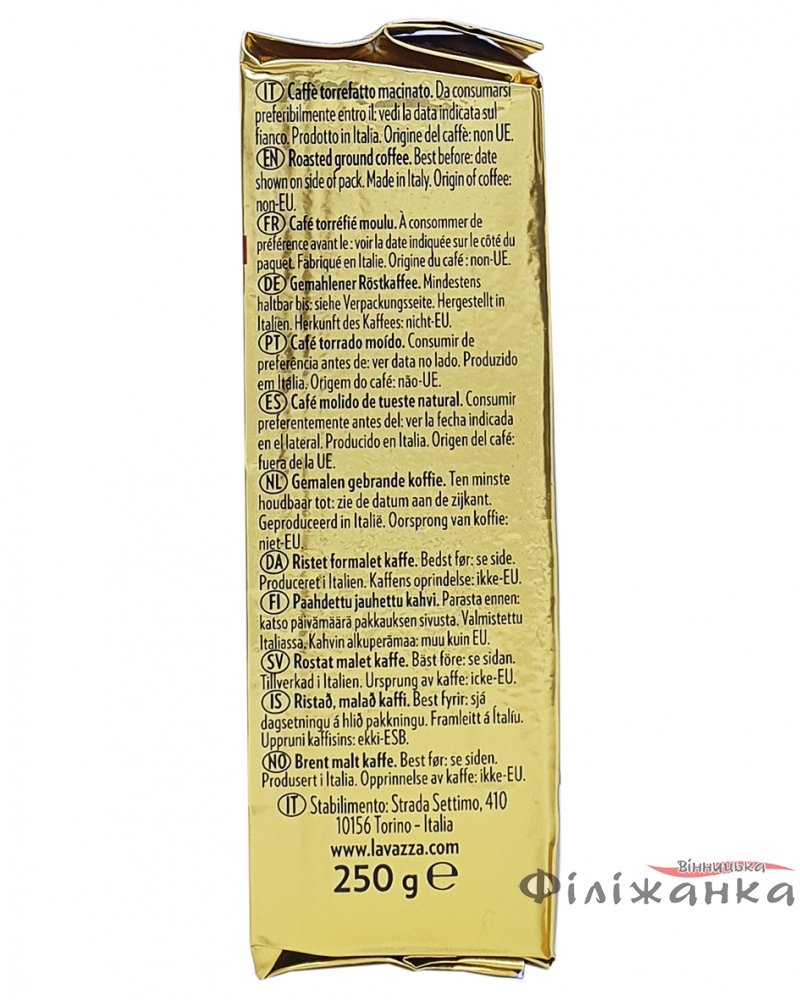 IT Caffè torrefatto macinato. Da consumarsi
preferibilmente entro il: vedi la data indicata sul
fianco. Prodotto in Italia. Origine del caffè: non UE.
EN Roasted ground coffee. Best before: date
shown on side of pack. Made in Italy. Origin of coffee:
non-EU.
FR Café torréfié moulu. À consommer de
préférence avant le : voir la date indiquée sur le côté du
paquet. Fabriqué en Italie. Origine du café : non-UE.
DE Gemahlener Röstkaffee. Mindestens
haltbar bis: siehe Verpackungsseite. Hergestellt in
Italien. Herkunft des Kaffees: nicht-EU.
PT Café torrado moído. Consumir de
preferência antes de: ver data no lado. Produzido
em Itália. Origem do café: não-UE.
ES Café molido de tueste natural. Consumir
preferentemente antes del: ver la fecha indicada
en el lateral. Producido en Italia. Origen del café:
fuera de la UE.
NL Gemalen gebrande koffie. Ten minste
houdbaar tot: zie de datum aan de zijkant.
Geproduceerd in Italië. Oorsprong van koffie:
niet-EU.
DA Ristet formalet kaffe. Bedst før: se side.
Produceret i Italien. Kaffens oprindelse: ikke-EU.
FI Paahdettu jauhettu kahvi. Parasta ennen:
katso päivämäärä pakkauksen sivusta. Valmistettu
Italiassa. Kahvin alkuperämaa: muu kuin EU.
SV Rostat malet kaffe. Bäst före: se sidan.
Tillverkad i Italien. Ursprung av kaffe: icke-EU.
IS Ristað, malað kaffi. Best fyrir: sjá
dagsetningu á hlið pakkningu. Framleitt á Ítalíu.
Uppruni kaffisins: ekki-ESB.
NO Brent malt kaffe. Best før: se siden.
Produsert i Italia. Opprinnelse av kaffe: ikke-EU.
IT Stabilimento: Strada Settimo, 410
10156 Torino - Italia
www.lavazza.com
250 g ℮
Вінницька
Філіжанка